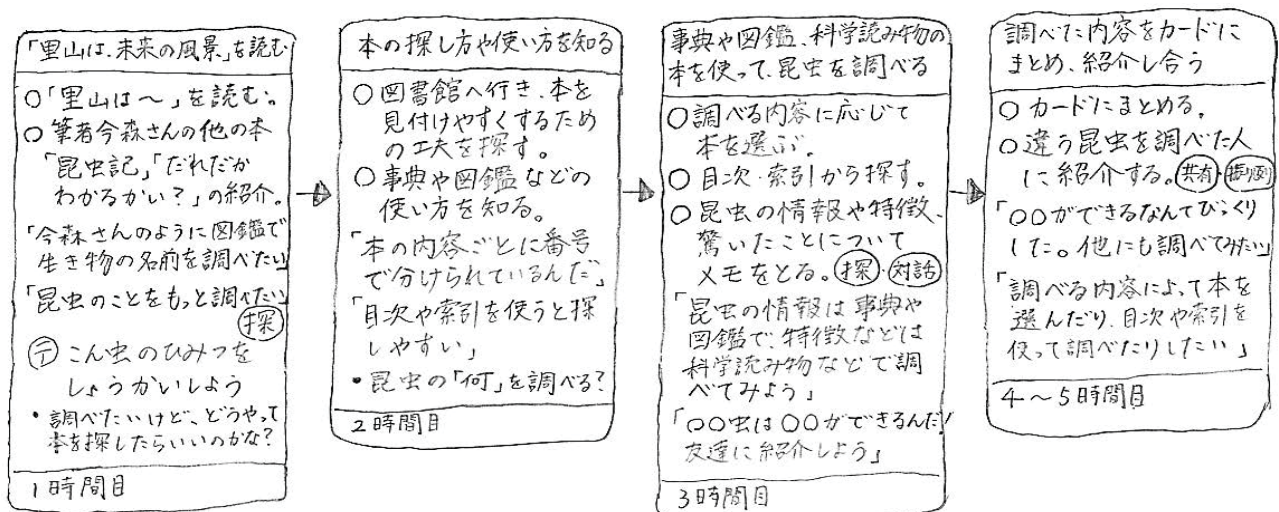 「里山は、未来の風景」を読む
○「里山は～」を読む。
○筆者今森さんの他の本
「昆虫記」「だれだか
わかるかい？」の紹介。
「今森さんのように図鑑で
生き物の名前を調べたい」
「昆虫のことをもっと調べたい」
探
テ こん虫のひみつを
しょうかいしよう
・調べたいけど、どうやって
本を探したらいいのかな？
1時間目
本の探し方や使い方を知る
○図書館へ行き、本を
見付けやすくするため
の工夫を探す。
○事典や図鑑などの
使い方を知る。
「本の内容ごとに番号
で分けられているんだ」
「目次や索引を使うと探
しやすい」
・昆虫の「何」を調べる？
2時間目
事典や図鑑、科学読み物の
本を使って、昆虫を調べる
○調べる内容に応じて
本を選ぶ。
○目次・索引から探す。
○昆虫の情報や特徴、
驚いたことについて
メモをとる。探・対話
「昆虫の情報は事典や
図鑑で、特徴などは
科学読み物などで調
べてみよう」
「○○虫は○○ができるんだ！
友達に紹介しよう」
3時間目
調べた内容をカードに
まとめ、紹介し合う
○カードにまとめる。
○違う昆虫を調べた人
に紹介する。共有・振り返り
「○○ができるなんてびっくり
した。他にも調べてみたい」
「調べる内容によって本を
選んだり、目次や索引を
使って調べたりしたい」
4～5時間目